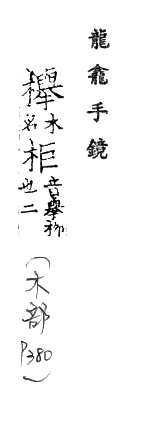 龍龕手鏡
櫸木名柜音舉柳也二
(木部P380)